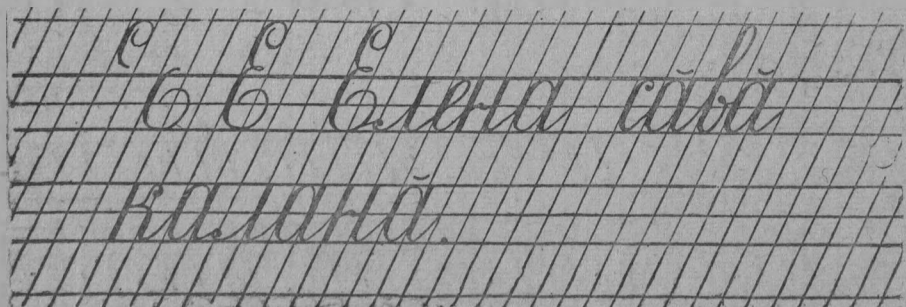 Е Е Елена сӑвӑ
каланӑ.